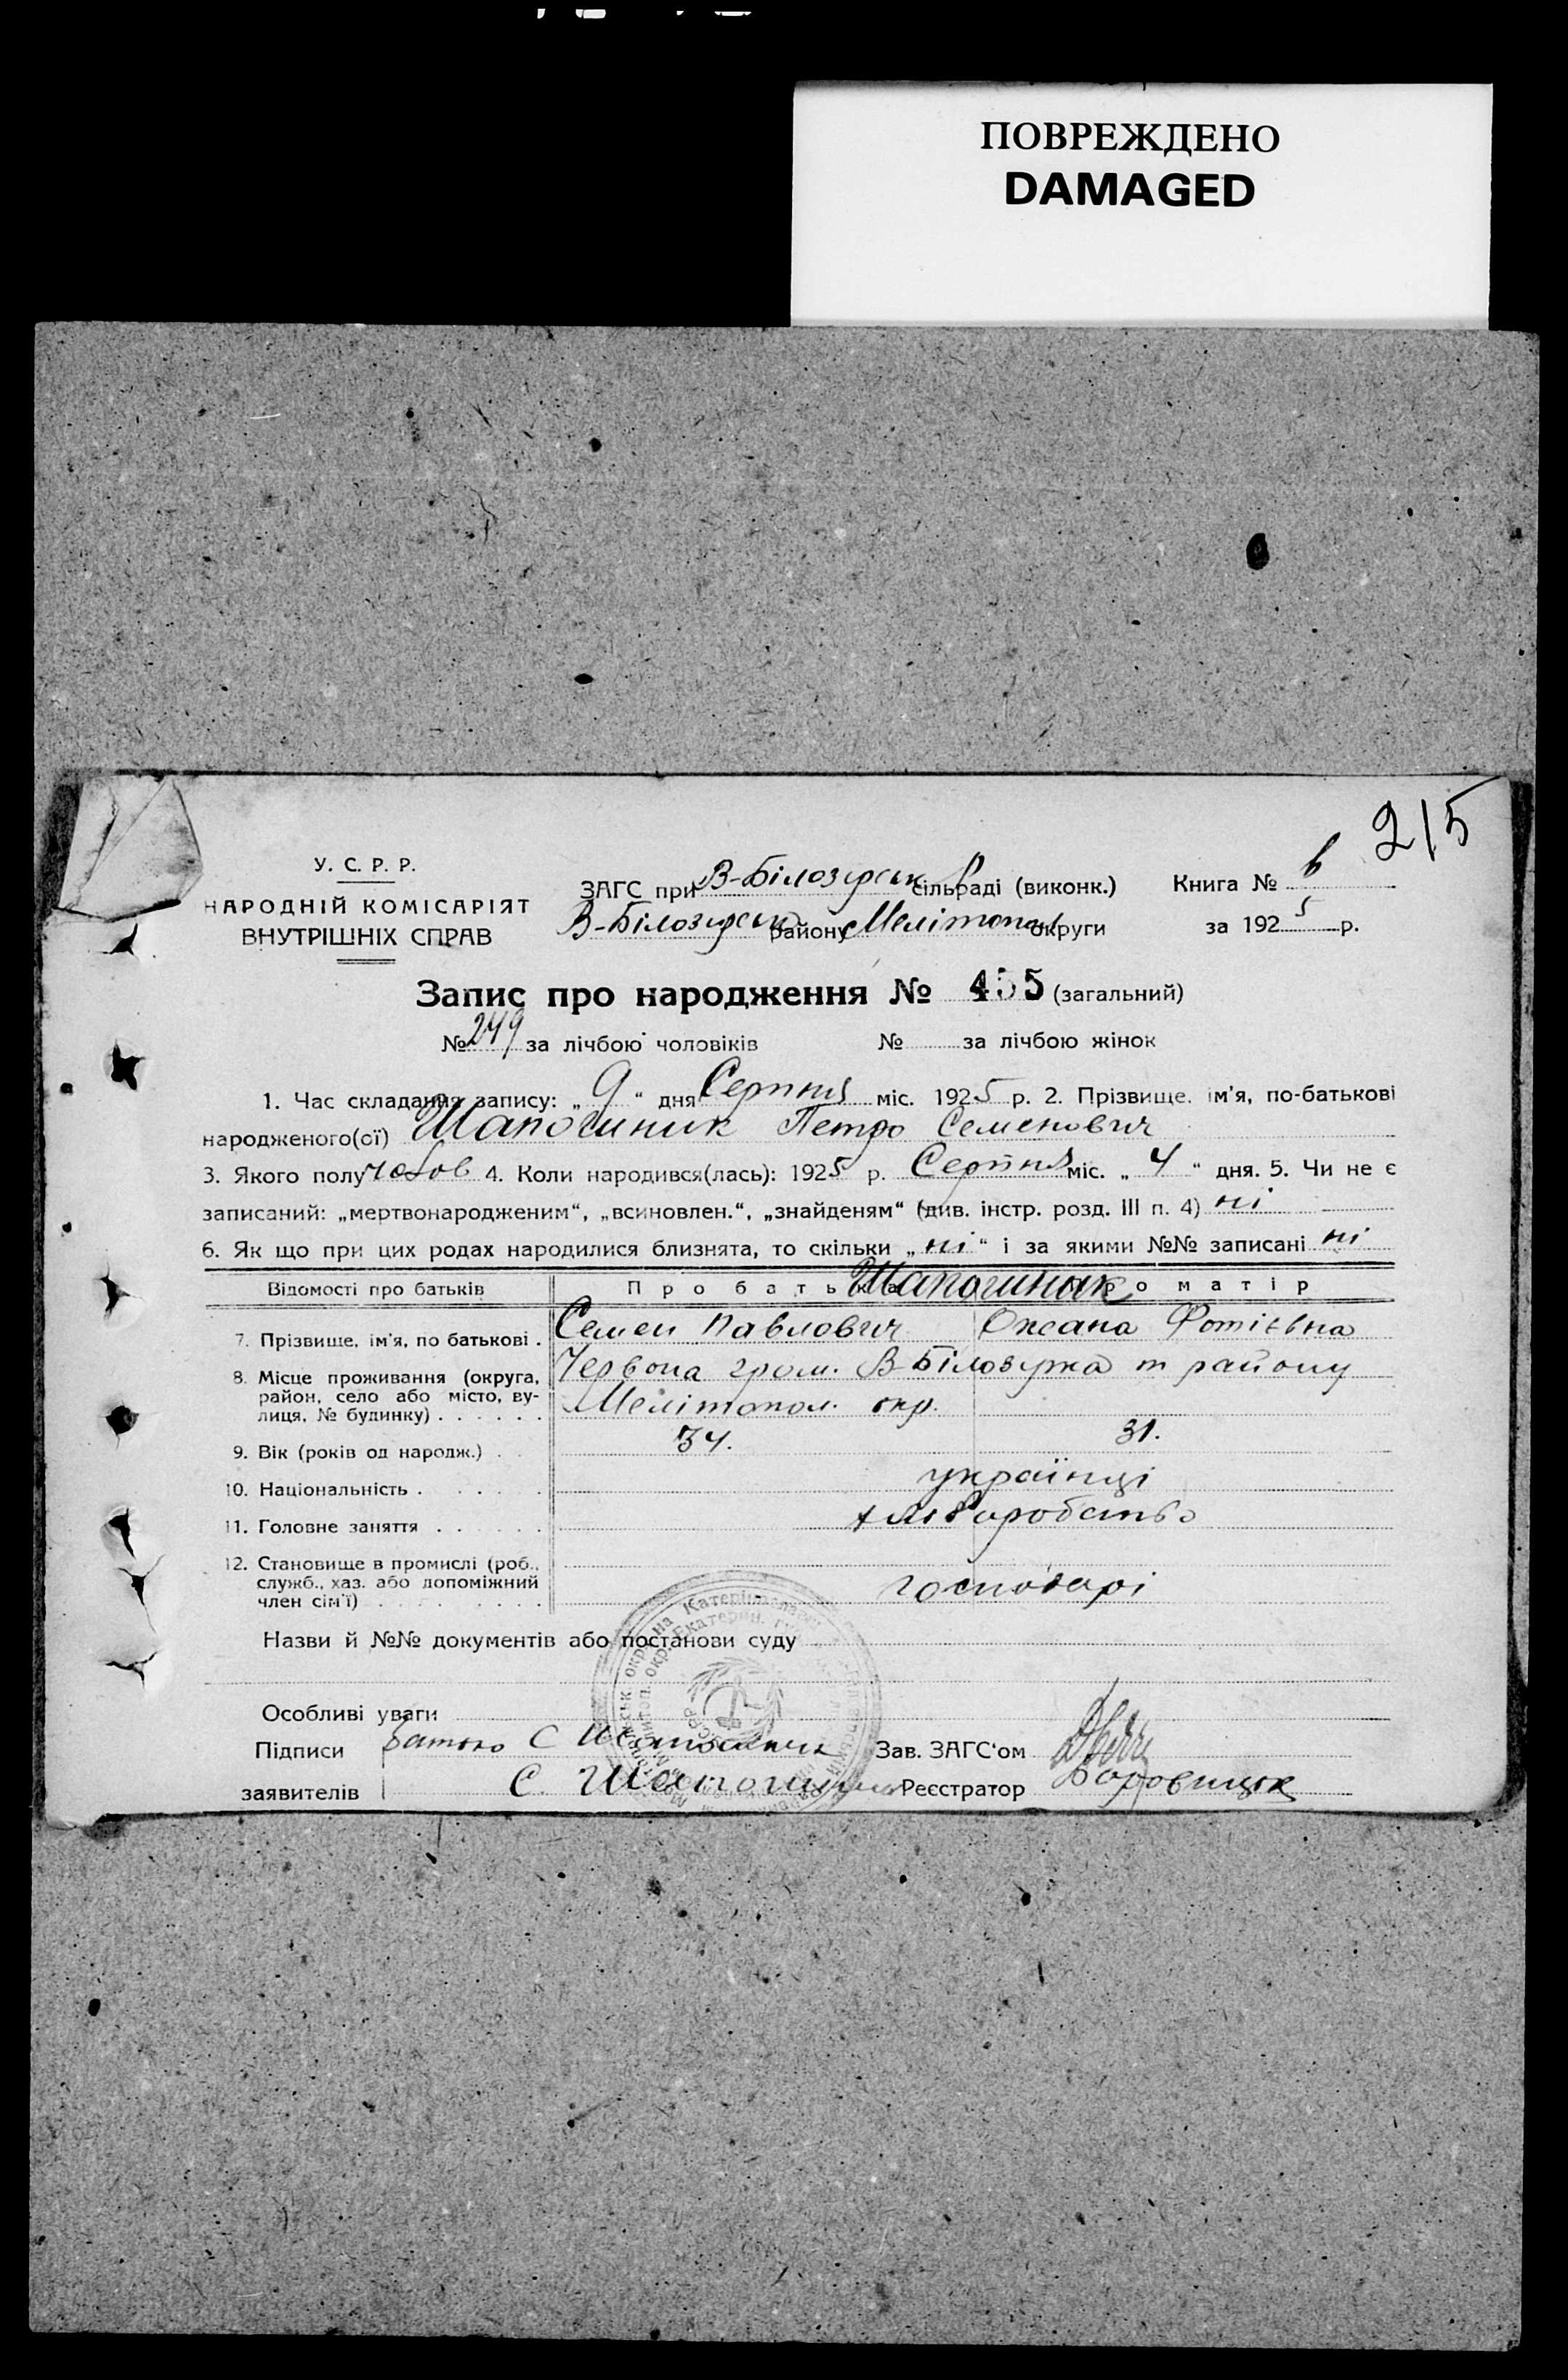 ПОВРЕЖДЕНО
DAMAGED
215
У. С. Р. Р.
НАРОДНІЙ КОМІСАРІЯТ
ВНУТРІШНІХ СПРАВ
ЗАГС при В-Білозирськ сільраді (виконк.) Книга № 6
В-Білозирськ району Мелітопол округи за 1925 р.
Запис про народження № 455 (загальний)
№ 249 за лічбою чоловіків № за лічбою жінок
1. Час складання запису: „ 9 “ дня Серпня міс. 1925 р. 2. Прізвище, ім'я, по-батькові
народженого(ої) Шапошник Петро Семенович
3. Якого полу чолов 4. Коли народився(лась): 1925 р. Серпня міс. „ 4 “ дня. 5. Чи не є
записаний: „мертвонародженим“, „всиновлен.“, „знайденям“ (див. інстр. розд. III п. 4) ні
6. Як що при цих родах народилися близнята, то скільки „ ні “ і за якими №№ записані ні
Відомості про батьків Про батька Шапошник Про матір
7. Прізвище, ім'я, по батькові . Семен Павлович Оксана Фотіївна
8. Місце проживання (округа, район, село або місто, вулиця, № будинку) . . . . . . Червона гром. В-Білозирка т району
Мелітопол. окр.
9. Вік (років од народж.) . 34. 31.
10. Національність . . . . . українці
11. Головне заняття . . . . . . хліборобство
12. Становище в промислі (роб.,
служб., хаз. або допоміжний
член сім'ї) . . . . . . . . . господарі
Назви й №№ документів або постанови суду
Особливі уваги
Підписи Батько С Шапошник Зав. ЗАГС'ом
заявителів С. Шапошник Реєстратор